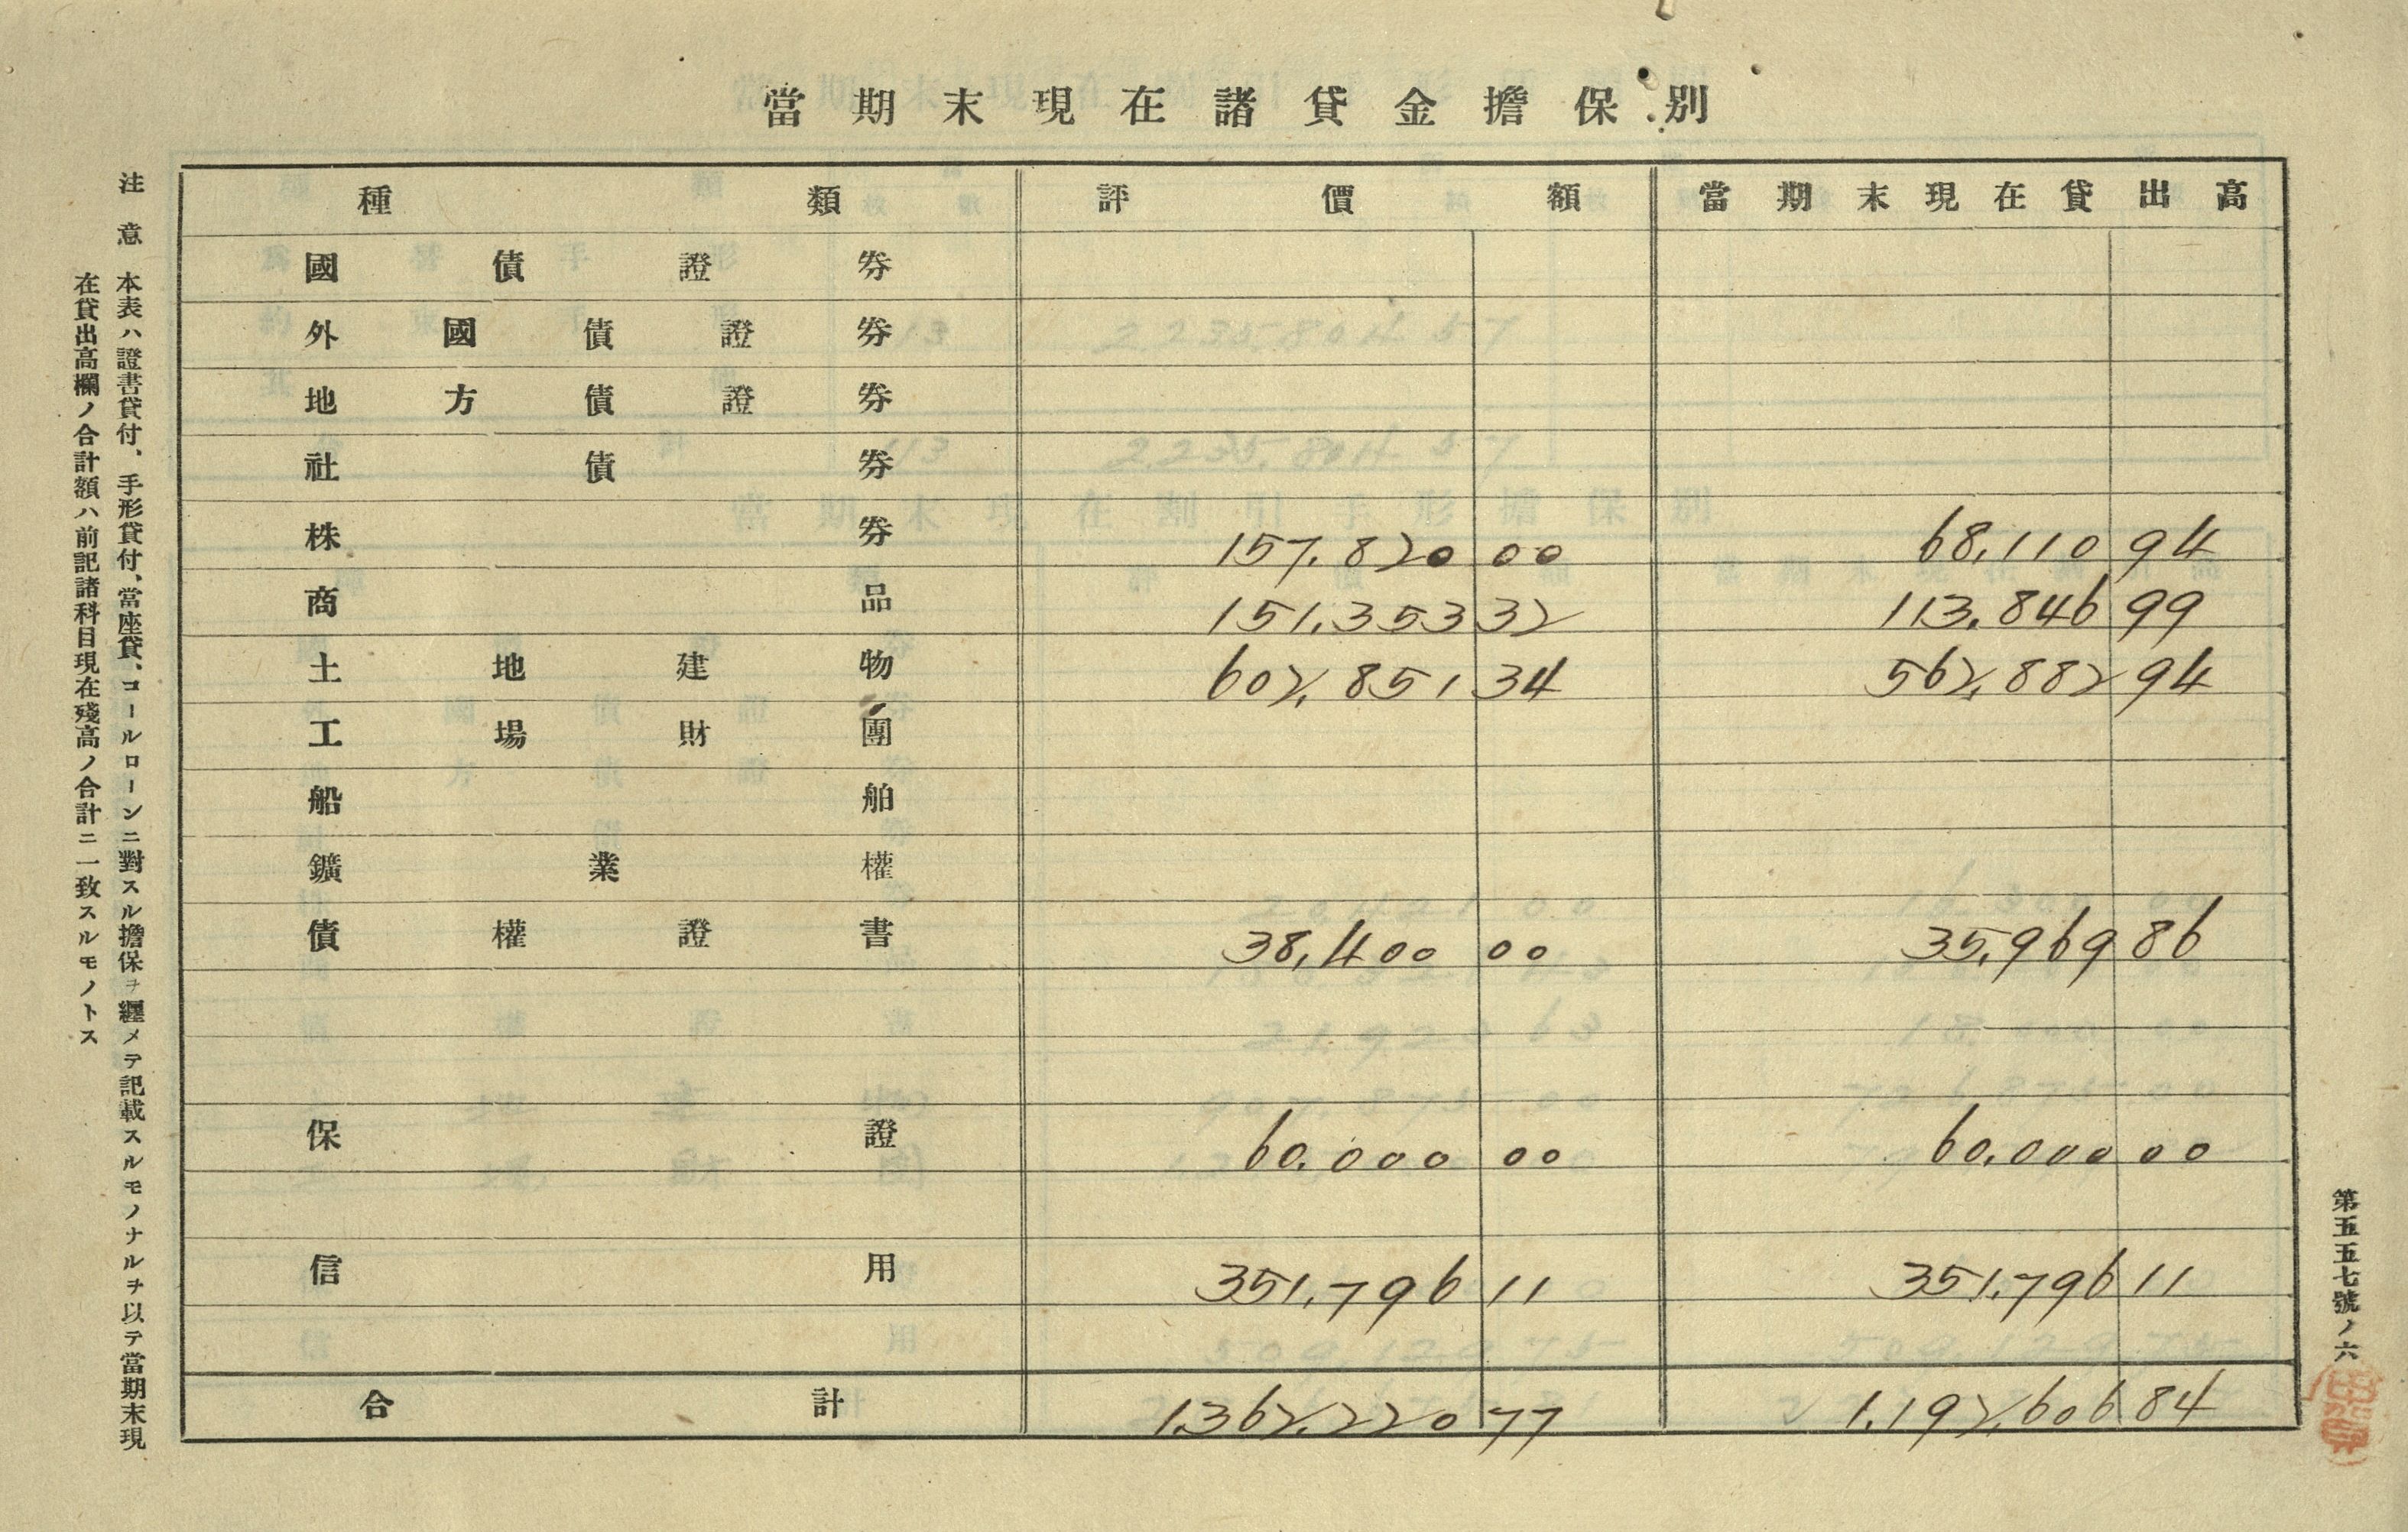 當期末現在諸貸金擔保別
種類 評價額 當期末現在貸出高
國債證券
外國債證券
地方債證券
社債券
株券 157,820 00 68,110 94
商品 151,353 32 113,846 99
土地建物 602,851 34 562,882 94
工場財團
船舶
鑛業權
債權證書 38,400 00 35,969 86
保證 60,000 00 60,000 00
信用 351,796 11 351,796 11
合計 1,362,220 77 1,192,606 84
注意 本表ハ證書貸付、手形貸付、當座貸、コールローンニ對スル擔保ヲ纒メテ記載スルモノナルヲ以テ當期末現
在貸出高欄ノ合計額ハ前記諸科目現在殘高ノ合計ニ一致スルモノトス
第五五七號ノ六